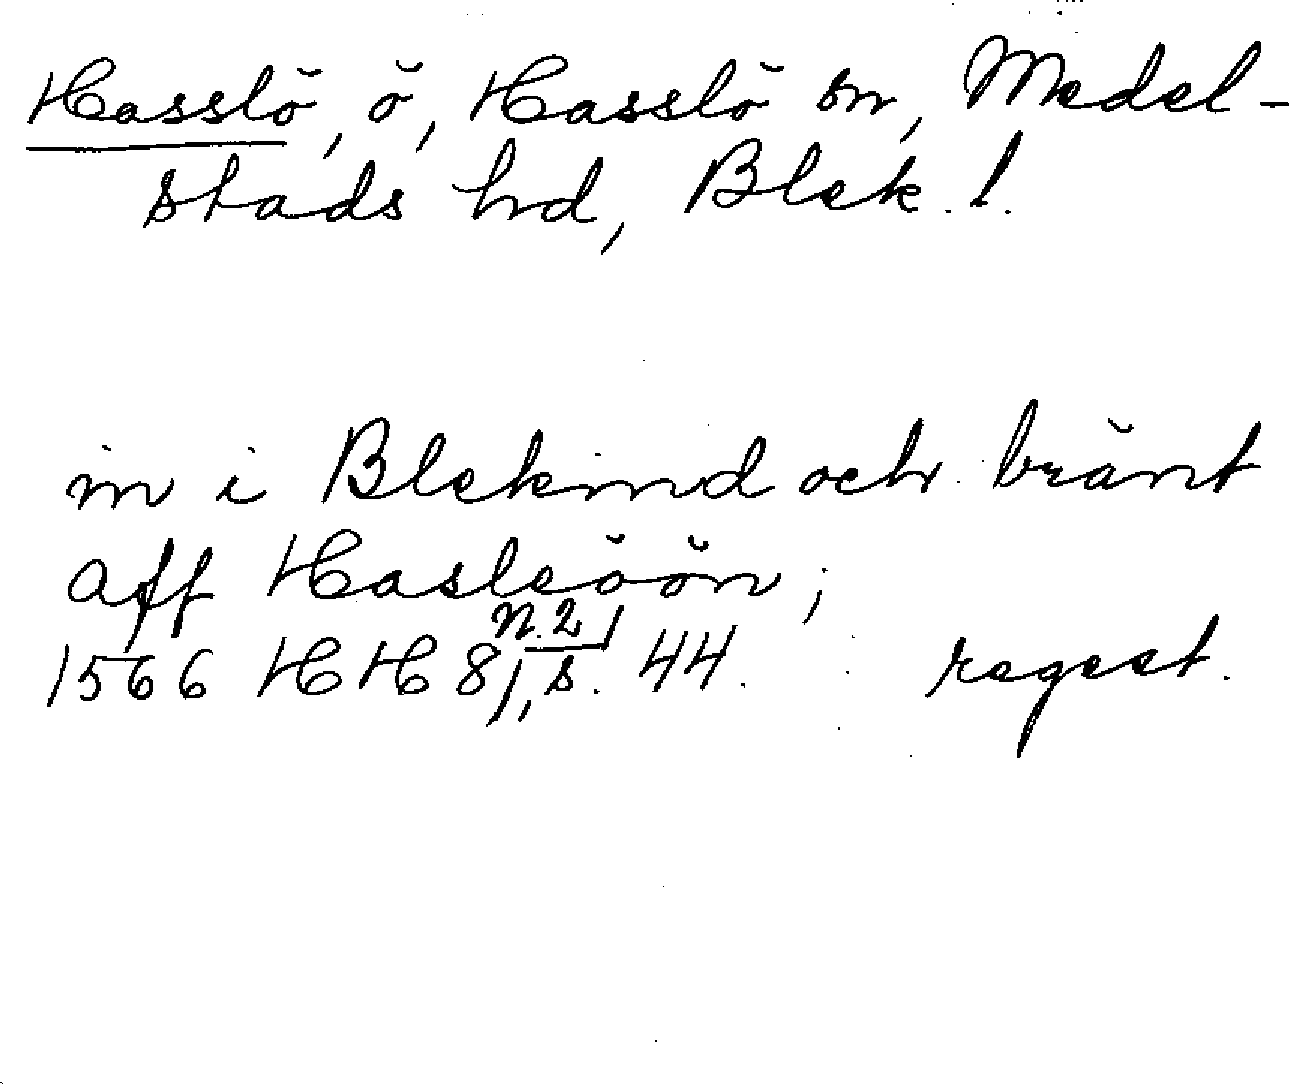 Hasslö, ö, Hasslö sn, Medel-
stads hd, Blek. l.
in i Blekind och bränt
aff Hasleöön;
1566 HH 8, n. 2, s. 44. regest.